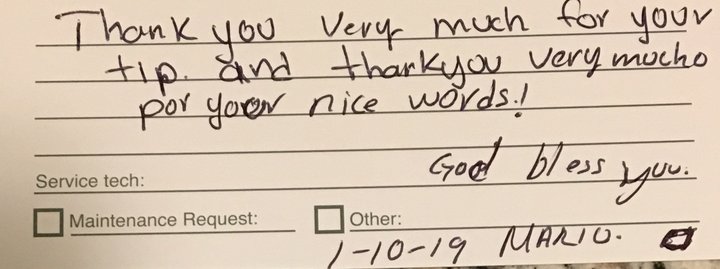 Thank you very much for your
tip. and thankyou very mucho
por your nice words.!
God bless you.
Service tech:
Maintenance Request: Other:
1-10-19 MARIO.